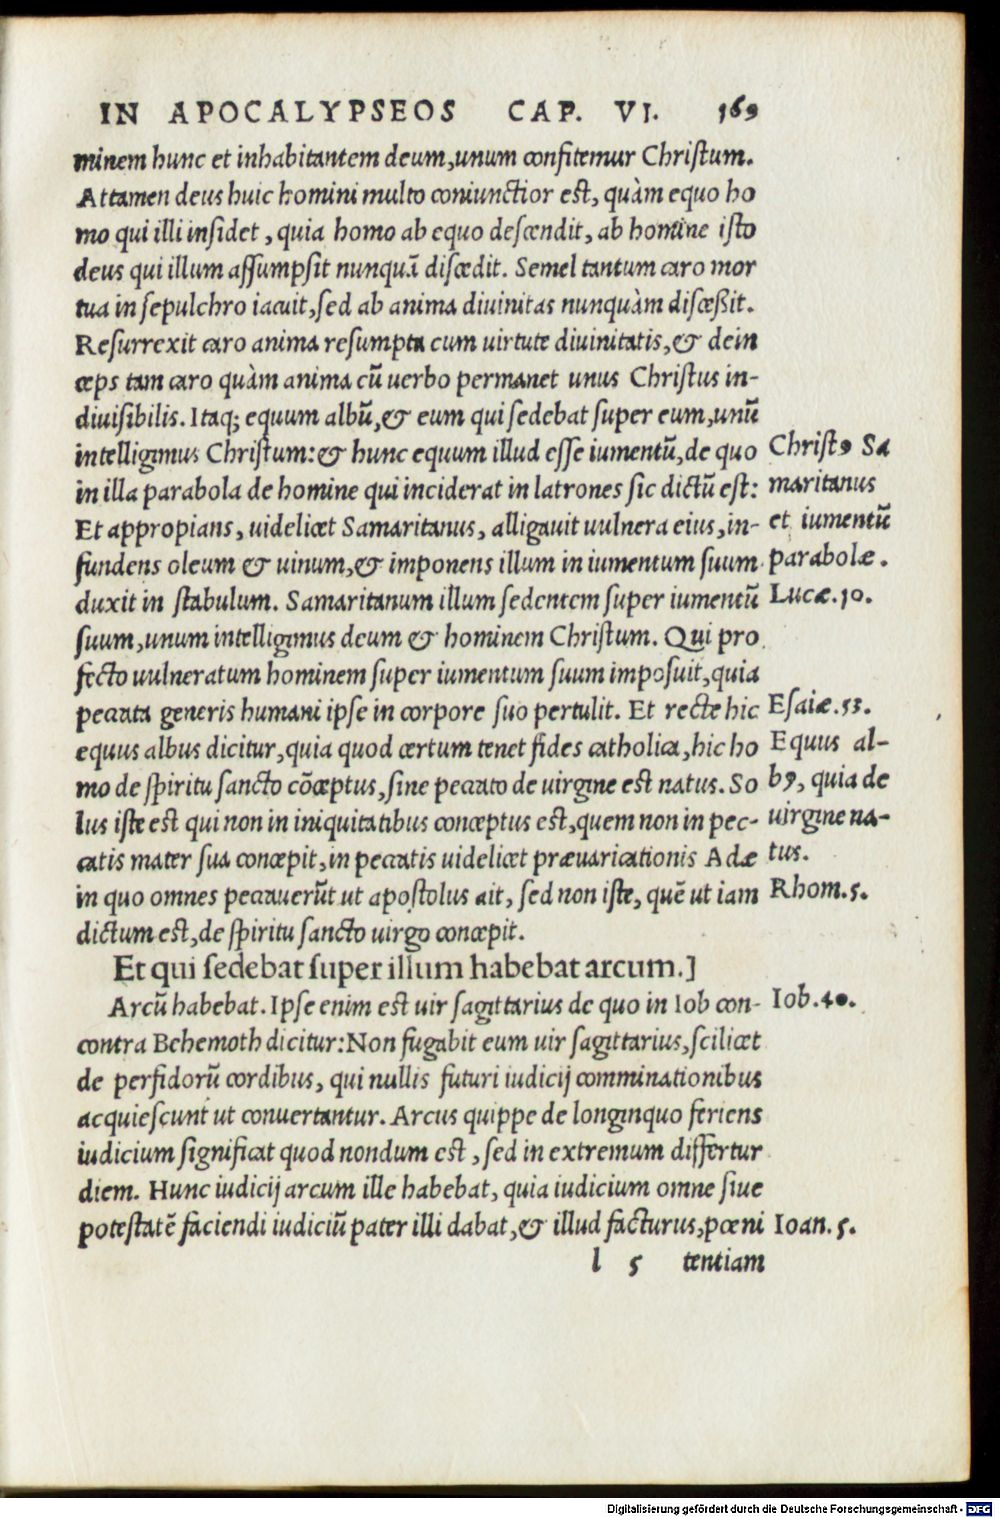 IN APOCALYPSEOS CAP. VI. 169
minem hunc et inhabitantem deum, unum confitemur Christum.
Attamen deus huic homini multo coniunctior est, quàm equo ho
mo qui illi insidet, quia homo ab equo descendit, ab homine isto
deus qui illum assumpsit nunquā discedit. Semel tantum caro mor
tua in sepulchro iacuit, sed ab anima diuinitas nunquàm disceßit.
Resurrexit caro anima resumpta cum uirtute diuinitatis, & dein
ceps tam caro quàm anima cū uerbo permanet unus Christus in-
diuisibilis. Itaq; equum albū, & eum qui sedebat super eum, unū
intelligimus Christum: & hunc equum illud esse iumentū, de quo
in illa parabola de homine qui inciderat in latrones sic dictū est:
Et appropians, uidelicet Samaritanus, alligauit uulnera eius, in-
fundens oleum & uinum, & imponens illum in iumentum suum
duxit in stabulum. Samaritanum illum sedentem super iumentū
suum, unum intelligimus deum & hominem Christum. Qui pro
fecto uulneratum hominem super iumentum suum imposuit, quia
peccata generis humani ipse in corpore suo pertulit. Et recte hic
equus albus dicitur, quia quod certum tenet fides catholica, hic ho
mo de spiritu sancto cōceptus, sine peccato de uirgine est natus. So
lus iste est qui non in iniquitatibus conceptus est, quem non in pec-
catis mater sua concepit, in peccatis uidelicet præuaricationis Adæ
in quo omnes peccauerūt ut apostolus ait, sed non iste, quē ut iam
dictum est, de spiritu sancto uirgo concepit.
Et qui sedebat super illum habebat arcum.]
Arcū habebat. Ipse enim est uir sagittarius de quo in Iob con-
contra Behemoth dicitur: Non fugabit eum uir sagittarius, scilicet
de perfidorū cordibus, qui nullis futuri iudicij comminationibus
acquiescunt ut conuertantur. Arcus quippe de longinquo feriens
iudicium significat quod nondum est, sed in extremum differtur
diem. Hunc iudicij arcum ille habebat, quia iudicium omne siue
potestatē faciendi iudiciū pater illi dabat, & illud facturus, pœni
l 5 tentiam
Christꝰ Sa
maritanus
et iumentū
parabolæ.
Lucæ. 10.
Esaiæ. 53.
Equus al-
bꝰ, quia de
uirgine na-
tus.
Rhom. 5.
Iob. 40.
Ioan. 5.
Digitalisierung gefördert durch die Deutsche Forschungsgemeinschaft - DFG